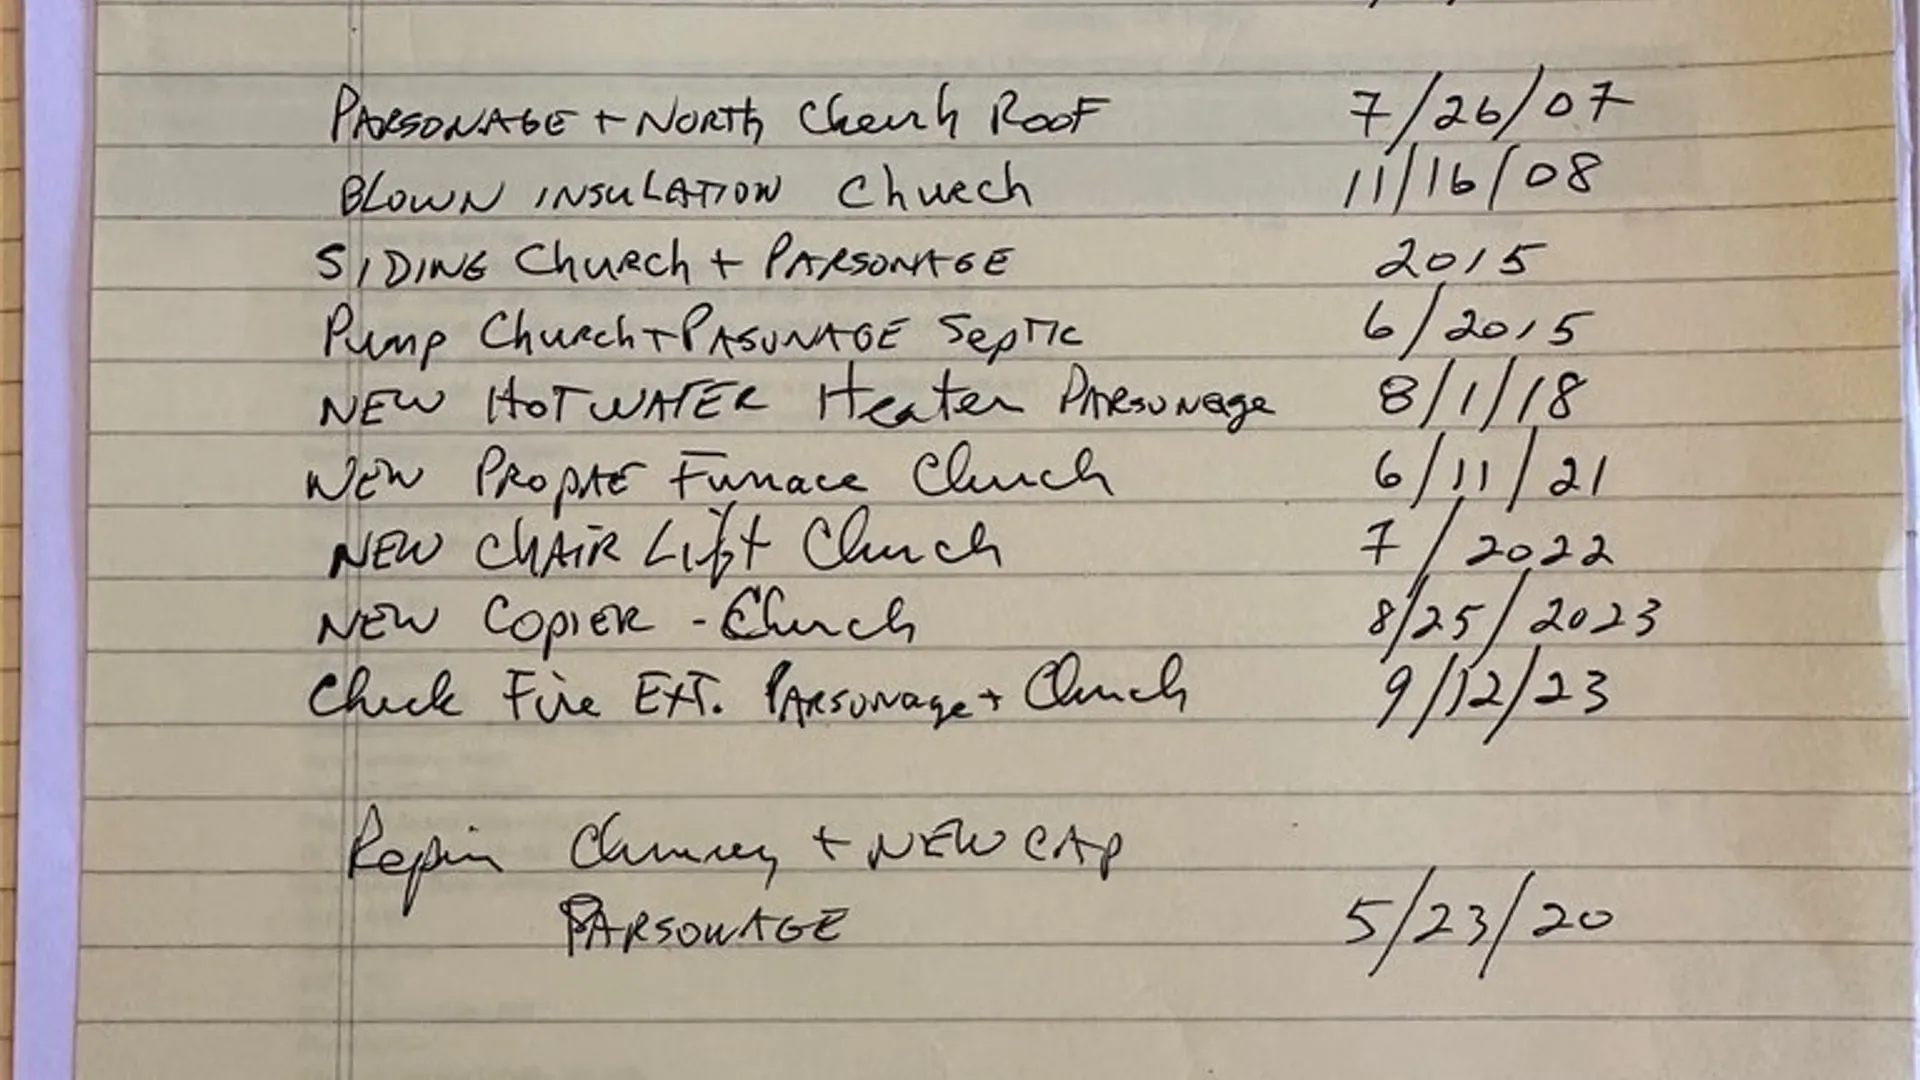 PARSONAGE + NORTH Church ROOF 7/26/07
BLOWN INSULATION Church 11/16/08
SIDING Church + PARSONAGE 2015
Pump Church + PASONAGE Septic 6/2015
NEW HOT WATER Heater PARSONage 8/1/18
NEW PROPAE Furnace Church 6/11/21
NEW CHAIR Lift Church 7/2022
NEW COPIER - Church 8/25/2023
Check Fire EXT. PARSONage + Church 9/12/23
Repair Chimney + NEW CAP
PARSONAGE 5/23/20